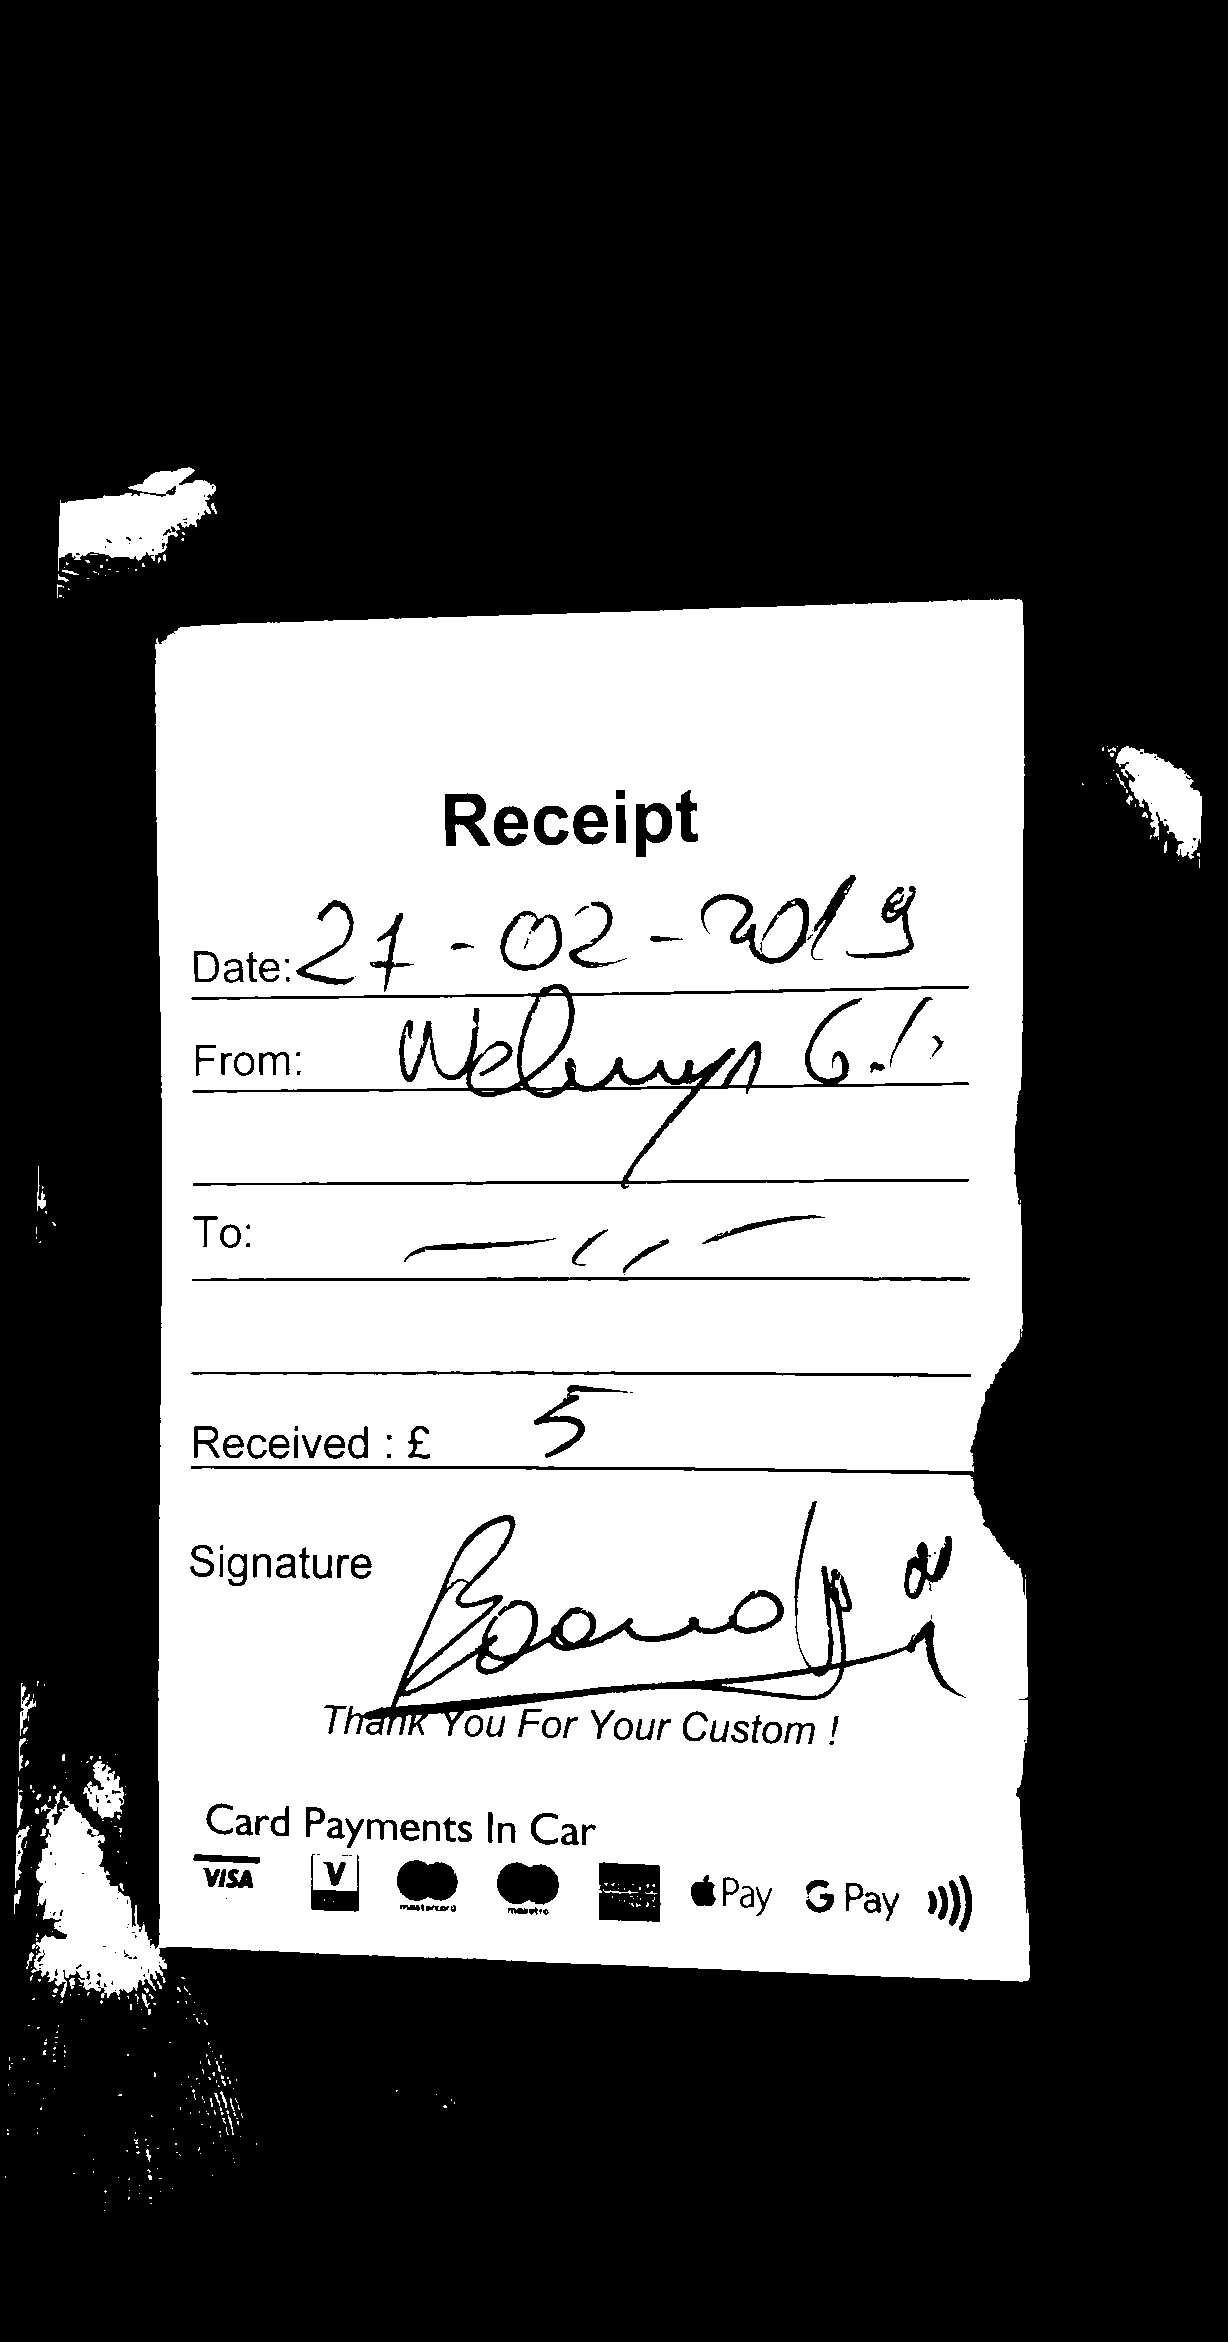 Receipt
Date: 27-02-2019
From: Welwyn G.
To:
Received : £ 5
Signature
Thank You For Your Custom !
Card Payments In Car
VISA V mastercard maestro Pay G Pay